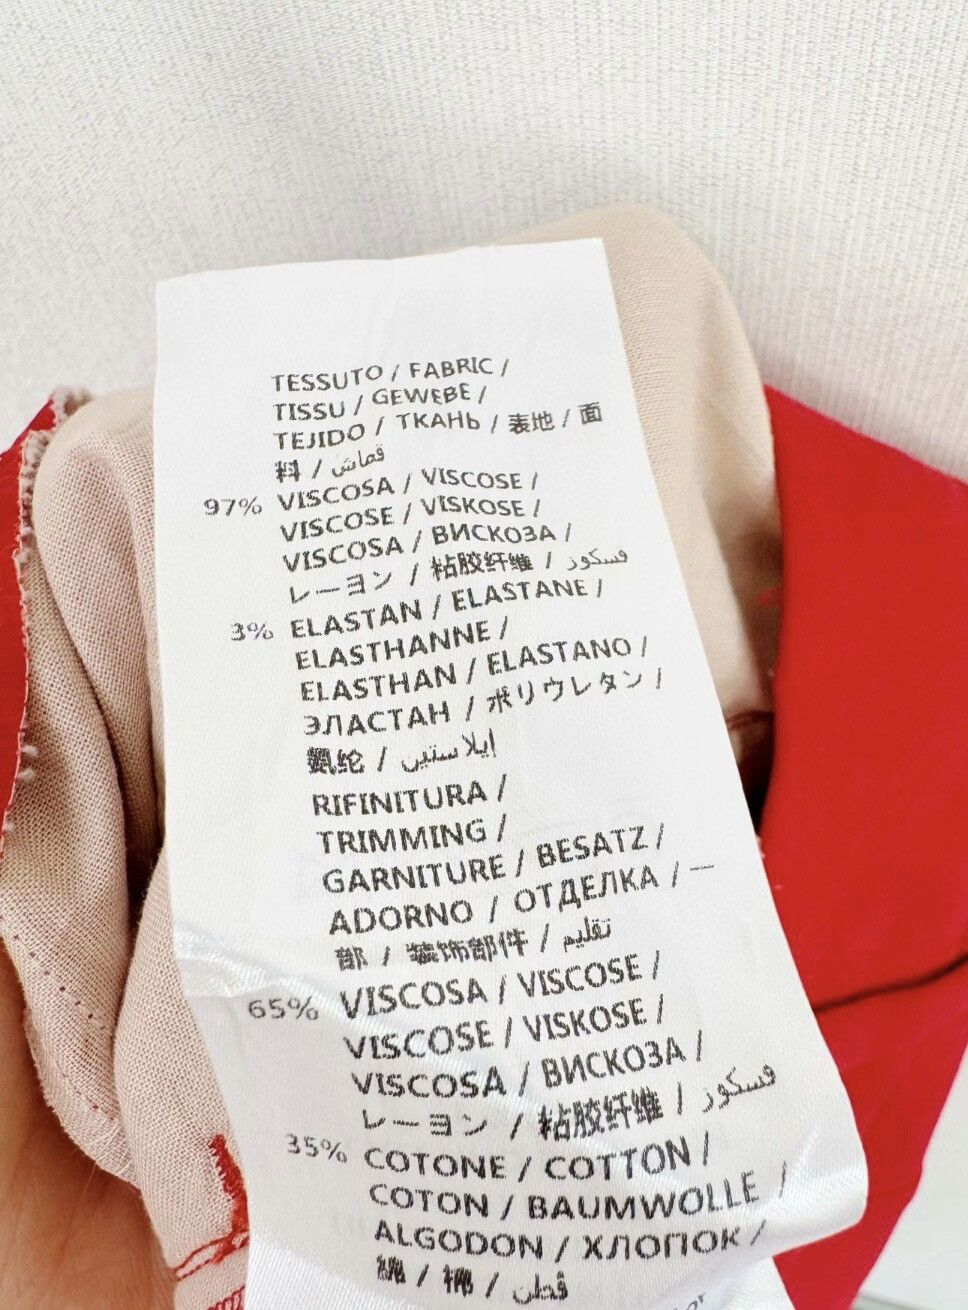 TESSUTO / FABRIC /
TISSU / GEWEBE /
TEJIDO / ТКАНЬ / 表地 / 面
料 / قماش
97% VISCOSA / VISCOSE /
VISCOSE / VISKOSE /
VISCOSA / ВИСКОЗА /
レーヨン / 粘胶纤维 / فسكوز
3% ELASTAN / ELASTANE /
ELASTHANNE /
ELASTHAN / ELASTANO /
ЭЛАСТАН / ポリウレタン /
氨纶 / ايلاستين
RIFINITURA /
TRIMMING /
GARNITURE / BESATZ /
ADORNO / ОТДЕЛКА / 一
部 / 装饰部件 / تقليم
65% VISCOSA / VISCOSE /
VISCOSE / VISKOSE /
VISCOSA / ВИСКОЗА /
レーヨン / 粘胶纤维 / فسكوز
35% COTONE / COTTON /
COTON / BAUMWOLLE /
ALGODON / ХЛОПОК /
綿 / 棉 / قطن